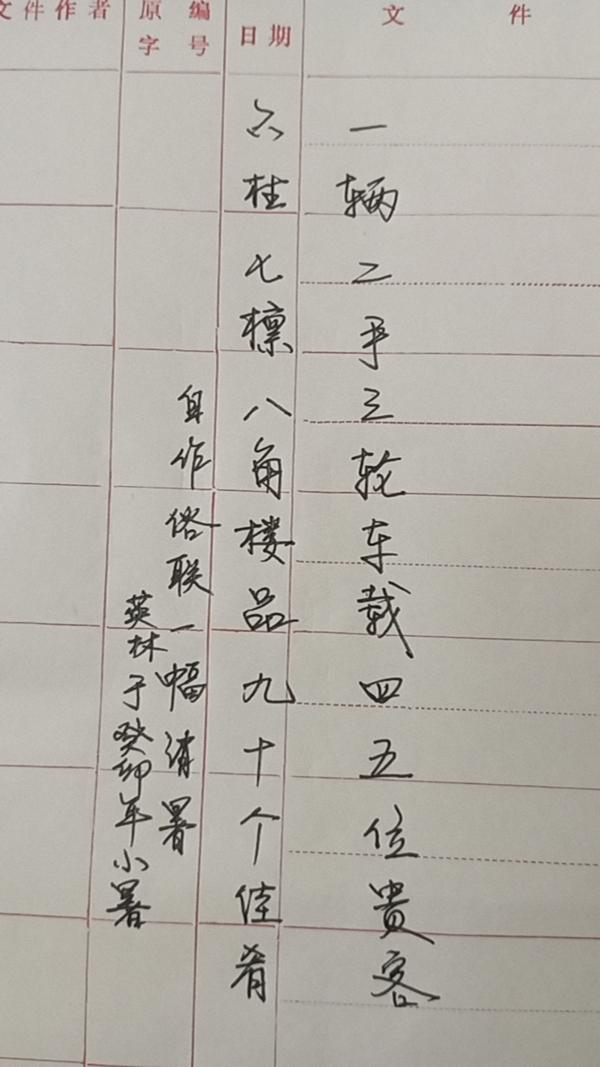 文件作者
原编
字号
日期
文件
一辆二手三轮车载四五位贵客
六柱七檩八角楼品九十个佳肴
自作俗联一幅消暑
英林于癸卯年小暑